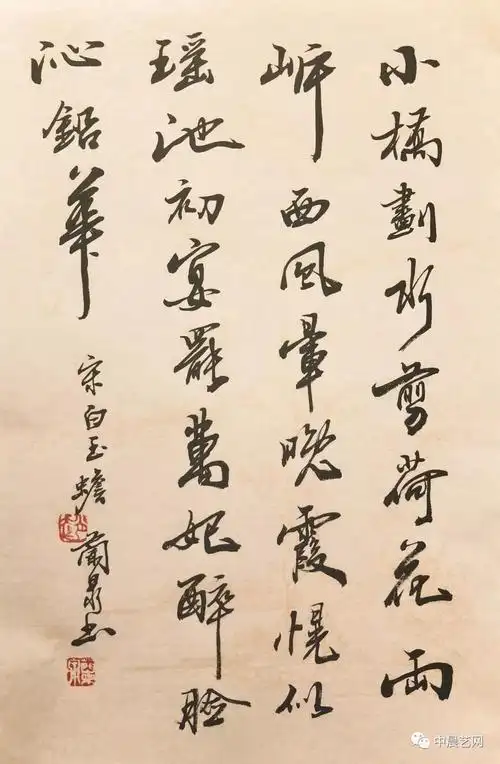 小橋劃水剪荷花兩
岸西風暈晚霞恍似
瑶池初宴罷萬妃醉臉
沁鉛華
宋白玉蟾 蘭泉書
中晨艺网